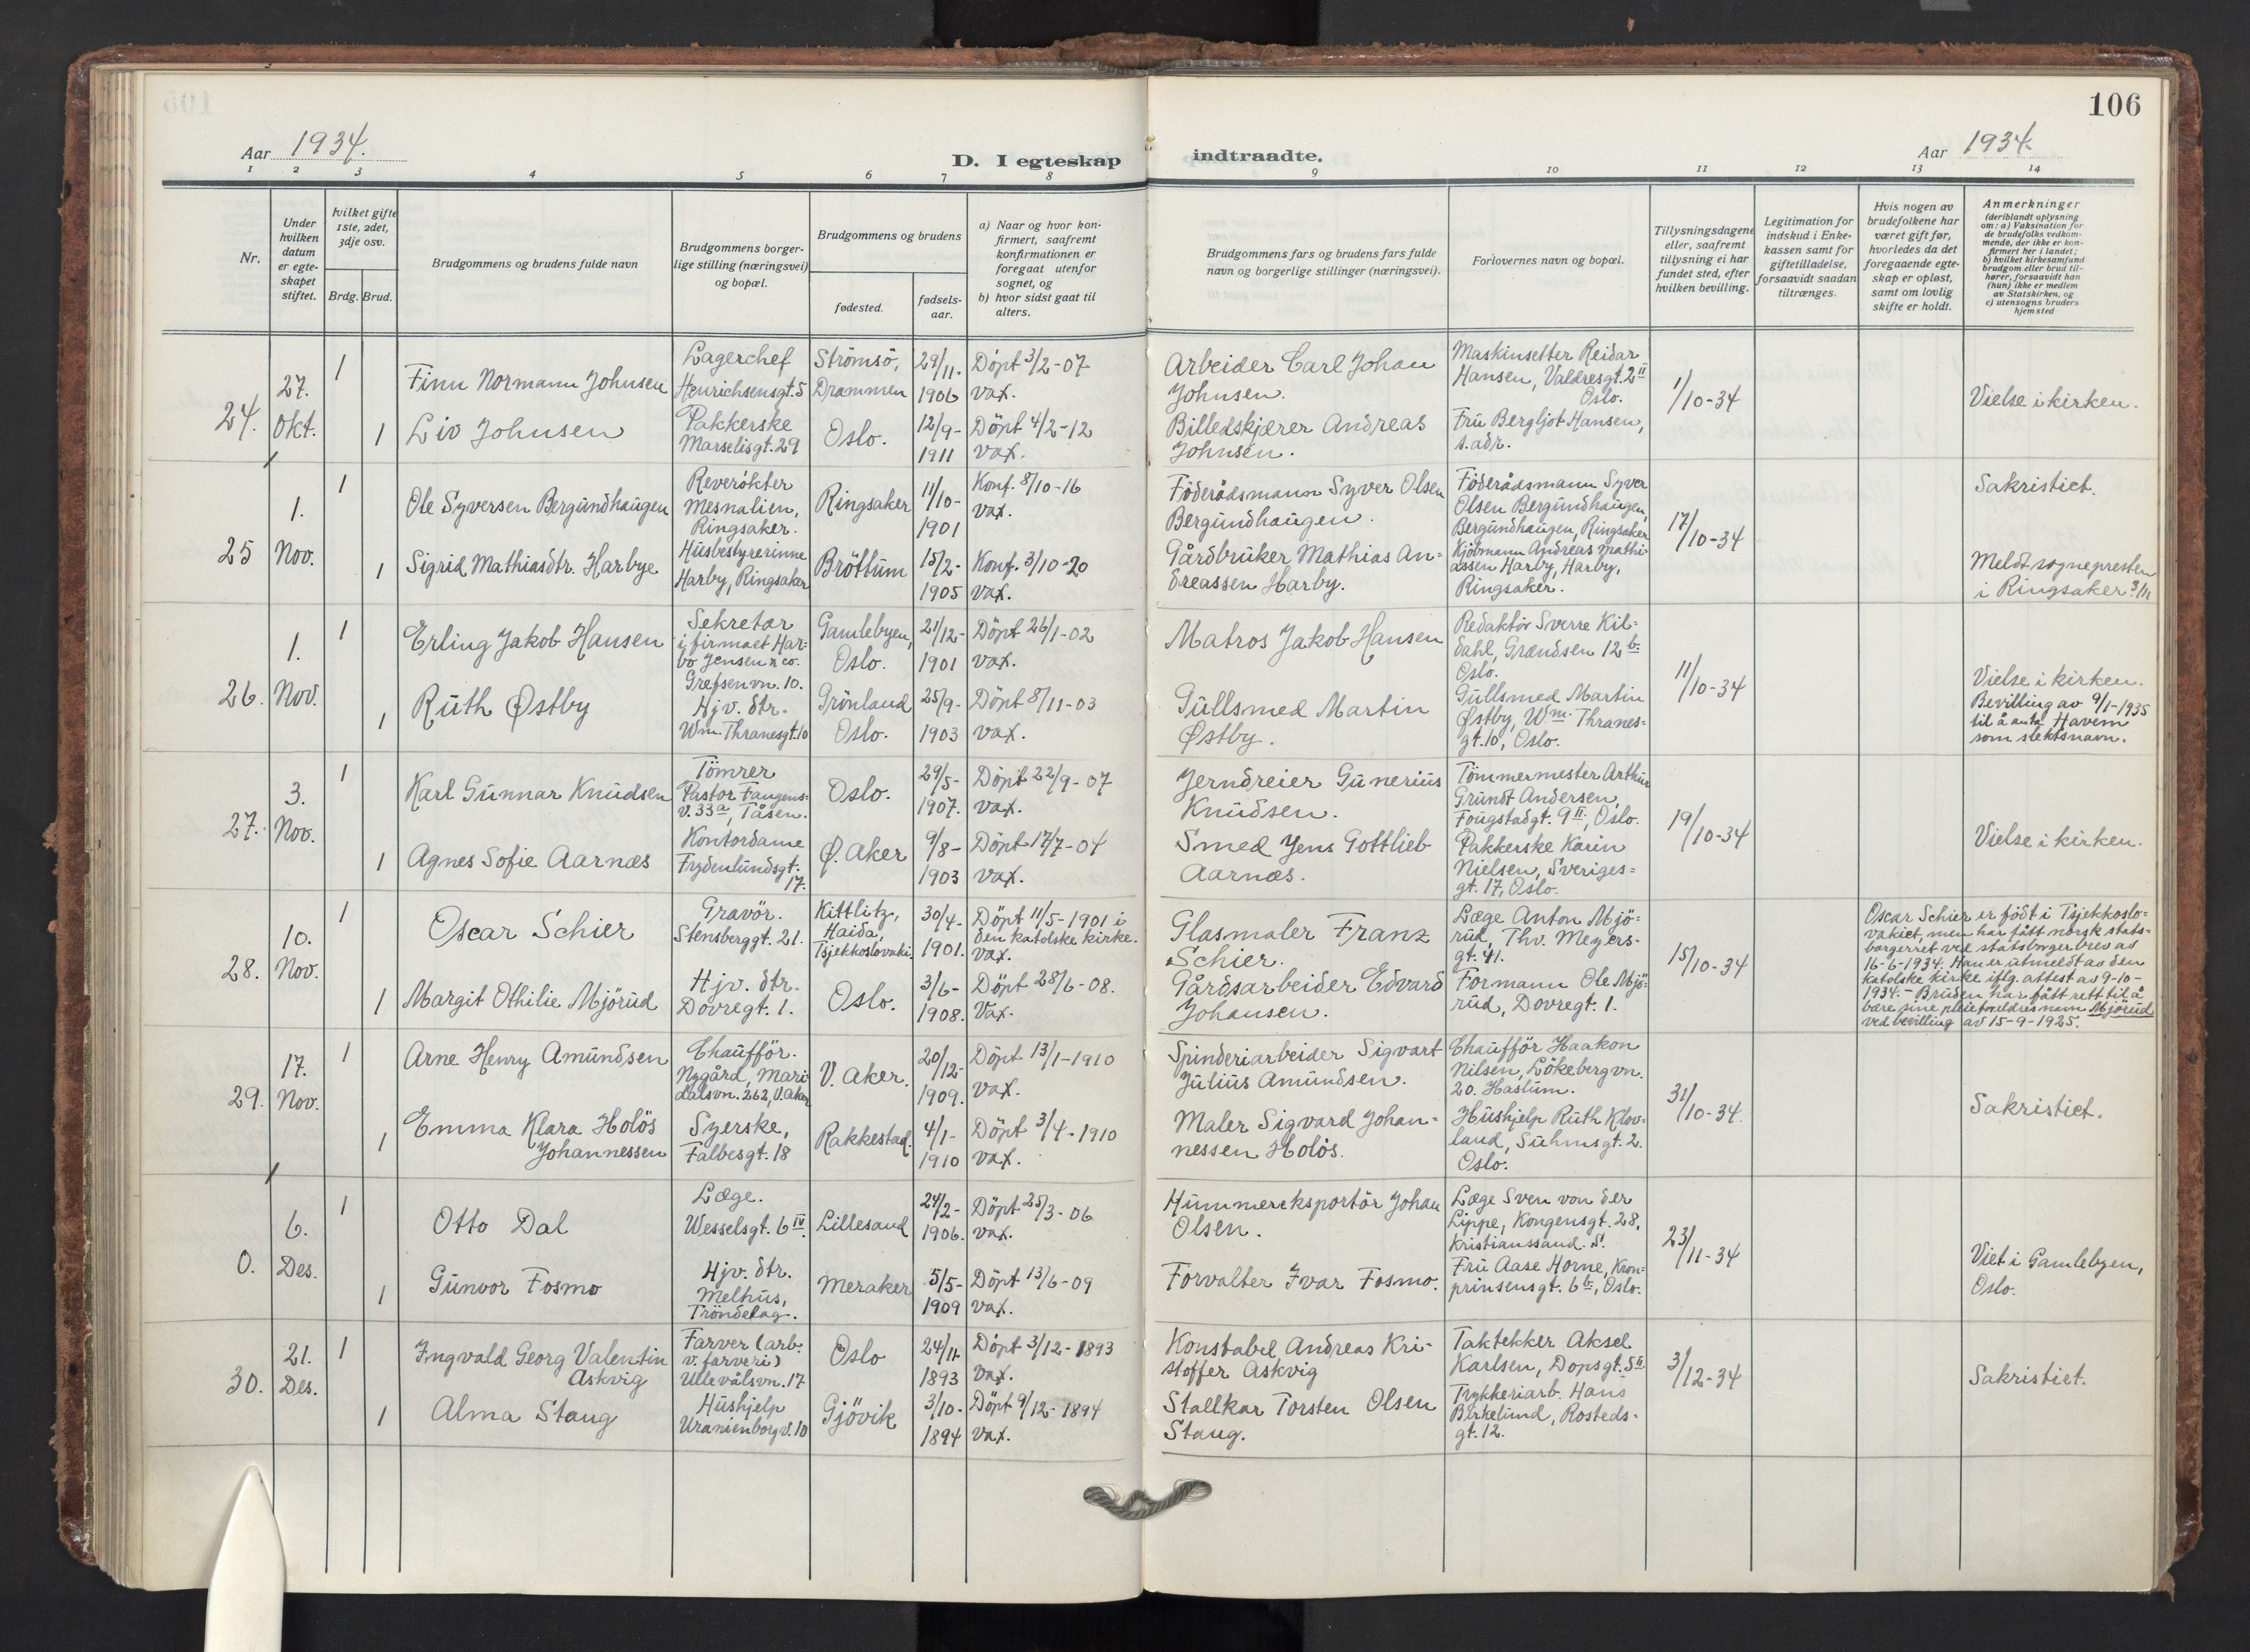 106
Aar 1934.
D. I egteskap
indtraadte.
Aar 1934.
1 2 3 4 5 6 7 8 9 10 11 12 13 14
Nr.
Under
hvilken
datum
er egte-
skapet
stiftet.
hvilket gifte
1ste, 2det,
3dje osv.
Brdg. Brud.
Brudgommens og brudens fulde navn
Brudgommens borger-
lige stilling (næringsvei)
og bopæl.
Brudgommens og brudens
fødested.
fødsels-
aar.
a) Naar og hvor kon-
firmert, saafremt
konfirmationen er
foregaat utenfor
sognet, og
b) hvor sidst gaat til
alters.
Brudgommens fars og brudens fars fulde
navn og borgerlige stillinger (næringsvei).
Forlovernes navn og bopæl.
Tillysningsdagene
eller, saafremt
tillysning ei har
fundet sted, efter
hvilken bevilling.
Legitimation for
indskud i Enke-
kassen samt for
giftetilladelse,
forsaavidt saadan
tiltrænges.
Hvis nogen av
brudefolkene har
været gift før,
hvorledes da det
foregaaende egte-
skap er opløst,
samt om lovlig
skifte er holdt.
Anmerkninger
(deriblandt oplysning
om: a) Vaksination for
de brudefolks vedkom-
mende, der ikke er kon-
firmert her i landet;
b) hvilket kirkesamfund
brudgom eller brud til-
hører, forsaavidt han
(hun) ikke er medlem
av Statskirken, og
c) utensogns bruders
hjemsted
24.
27.
Okt.
1
Finn Normann Johnsen
Lagerchef
Henrichsensgt. 5
Strömsö,
Drammen
29/11-
1906
Döpt 3/2-07
vax.
Arbeider Carl Johan
Johnsen.
Maskinsetter Reidar
Hansen, Valdresgt. 2 II
Oslo.
1/10-34
Vielse i kirken.
1
Liv Johnsen
Pakkerske
Marselisgt. 29
Oslo.
12/9-
1911
Döpt 4/2-12
vax.
Billedskjærer Andreas
Johnsen.
Frü Bergljot Hansen,
s. adr.
25
1.
Nov.
1
Ole Syversen Bergündhaügen
Reverökter
Mesnalien,
Ringsaker.
Ringsaker
11/10-
1901
Konf. 8/10-16
vax.
Föderådsmann Syver Olsen
Bergündhaügen.
Föderådsmann Syver
Olsen Bergündhaügen,
Bergündhaügen, Ringsaker
17/10-34
Sakristiet.
1
Sigrid Mathiasdtr. Harbye
Hüsbestyrerinne
Harby, Ringsaker
Bröttüm
15/2-
1905
Konf. 3/10-20
vax.
Gårdbrüker Mathias An=
dreassen Harby.
Kjöbmann Andreas Mathi=
assen Harby, Harby,
Ringsaker.
Meldt sognepresten
i Ringsaker 3/11
26.
1.
Nov.
1
Erling Jakob Hansen
Sekretær
i firmaet Har=
bo Jensen & co.
Grefsenvn. 10.
Gamlebyen,
Oslo.
21/12-
1901
Döpt 26/1-02
vax.
Matros Jakob Hansen
Redaktör Sverre Kil=
dahl, Grændsen 12 b.
Oslo.
11/10-34
Vielse i kirken.
Bevilling av 9/1-1935
til å anta Havem
som slektsnavn.
1
Rüth Østby
Hjv. dtr.
Wm. Thranesgt. 10
Grönland
Oslo.
25/9-
1903
Döpt 8/11-03
vax.
Güllsmed Martin
Østby.
Güllsmed Martin
Østby, Wm. Thranes=
gt. 10, Oslo.
27.
3.
Nov.
1
Karl Günnar Knüdsen
Tömrer
Pastor Fangens=
v. 33 a, Tåsen.
Oslo.
29/5-
1907.
Döpt 22/9-07
vax.
Jerndreier Günerius
Knüdsen.
Tömmermester Arthür
Gründt Andersen,
Fougstadgt. 9 II, Oslo.
19/10-34
Vielse i kirken.
1
Agnes Sofie Aarnæs
Kontordame
Frydenlündsgt.
17.
Ø. Aker
9/8-
1903
Döpt 17/7-04
vax.
Smed Jens Gottlieb
Aarnæs.
Pakkerske Karin
Nielsen, Sveriges=
gt. 17, Oslo.
28.
10.
Nov.
1
Oscar Schier
Gravör.
Stensberggt. 21.
Kittlitz,
Haida,
Tsjekkoslovaki.
30/4-
1901.
Döpt 11/5-1901 i
den katolske kirke.
vax.
Glasmaler Franz
Schier.
Læge Anton Mjö=
rüd, Thv. Meyers-
gt. 41.
15/10-34
Oscar Schier er födt i Tsjekkoslo=
vakiet, men har fått norsk stats=
borgerret ved statsborgerbrev av
16-6-1934. Han er utmeldt av den
katolske kirke iflg. attest av 9-10-
1934. - Brüden har fått rett til å
bære sine pleieforeldres navn Mjörüd
ved bevilling av 15-9-1925.
1
Margit Othilie Mjörüd
Hjv. dtr.
Dovregt. 1.
Oslo.
3/6-
1908.
Döpt 28/6-08.
Vax.
Gårdsarbeider Edvard
Johansen.
Formann Ole Mjö=
rüd, Dovregt. 1.
29.
17.
Nov.
1
Arne Henry Amündsen
Chaüfför.
Nygård, Mari=
dalsvn. 262, V. Aker
V. Aker.
20/12-
1909.
Döpt 13/1-1910
vax.
Spinderiarbeider Sigvart
Jülius Amündsen.
Chaüfför Haakon
Nilsen, Lökebergvn.
20. Haslüm.
31/10-34.
Sakristiet.
1
Emma Klara Holös
Johannessen
Syerske,
Falbesgt. 18
Rakkestad.
4/1-
1910
Döpt 3/4-1910
vax.
Maler Sigvard Johan-
nessen Holös.
Hüshjelp Rüth Klov-
land, Sühmsgt. 2.
Oslo.
0.
6.
Des.
1
Otto Dal
Læge.
Wesselsgt. 6 IV.
Lillesand
24/2-
1906.
Döpt 25/3-06
vax.
Hümmereksportör Johan
Olsen.
Læge Sven von der
Lippe, Kongensgt. 28,
Kristianssand. S.
23/11-34
Viet i Gamlebyen,
Oslo.
1
Günvor Fosmo
Hjv. dtr.
Melhüs,
Tröndelag.
Meraker
5/5-
1909
Döpt 13/6-09
vax.
Forvalter Ivar Fosmo.
Frü Aase Horne, Kron=
prinsensgt. 6 b., Oslo.
30.
21.
Des.
1
Ingvald Georg Valentin
Askvig
Farver (arb.
v. farveri)
Ullevålsvn. 17
Oslo
24/11-
1893
Döpt 3/12-1893
vax.
Konstabel Andreas Kri-
stoffer Askvig
Taktekker Aksel
Karlsen, Dopsgt. 5 II
3/12-34
Sakristiet.
1
Alma Staug
Hüshjelp
Uranienborgv. 10
Gjövik
3/10-
1894
Döpt 9/12-1894
vax.
Stallkar Torsten Olsen
Staug.
Trykkeriarb. Hans
Birkelünd, Rosteds-
gt. 12.